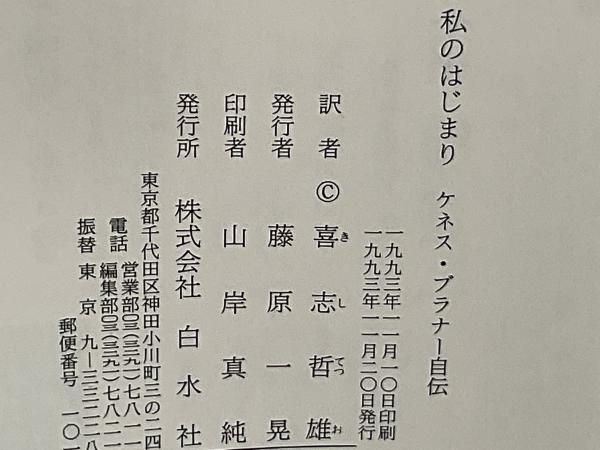 私のはじまり ケネス・ブラナー自伝
一九九三年一一月一〇日印刷
一九九三年一一月二〇日発行
訳者 © 喜志哲雄
き し てつ お
発行者 藤原一晃
印刷者 山岸真純
発行所 株式会社白水社
東京都千代田区神田小川町三の二四
電話 営業部〇三(三二九一)七八一一
編集部〇三(三二九一)七八二一
振替 東京 九―三三二二八
郵便番号 一〇一